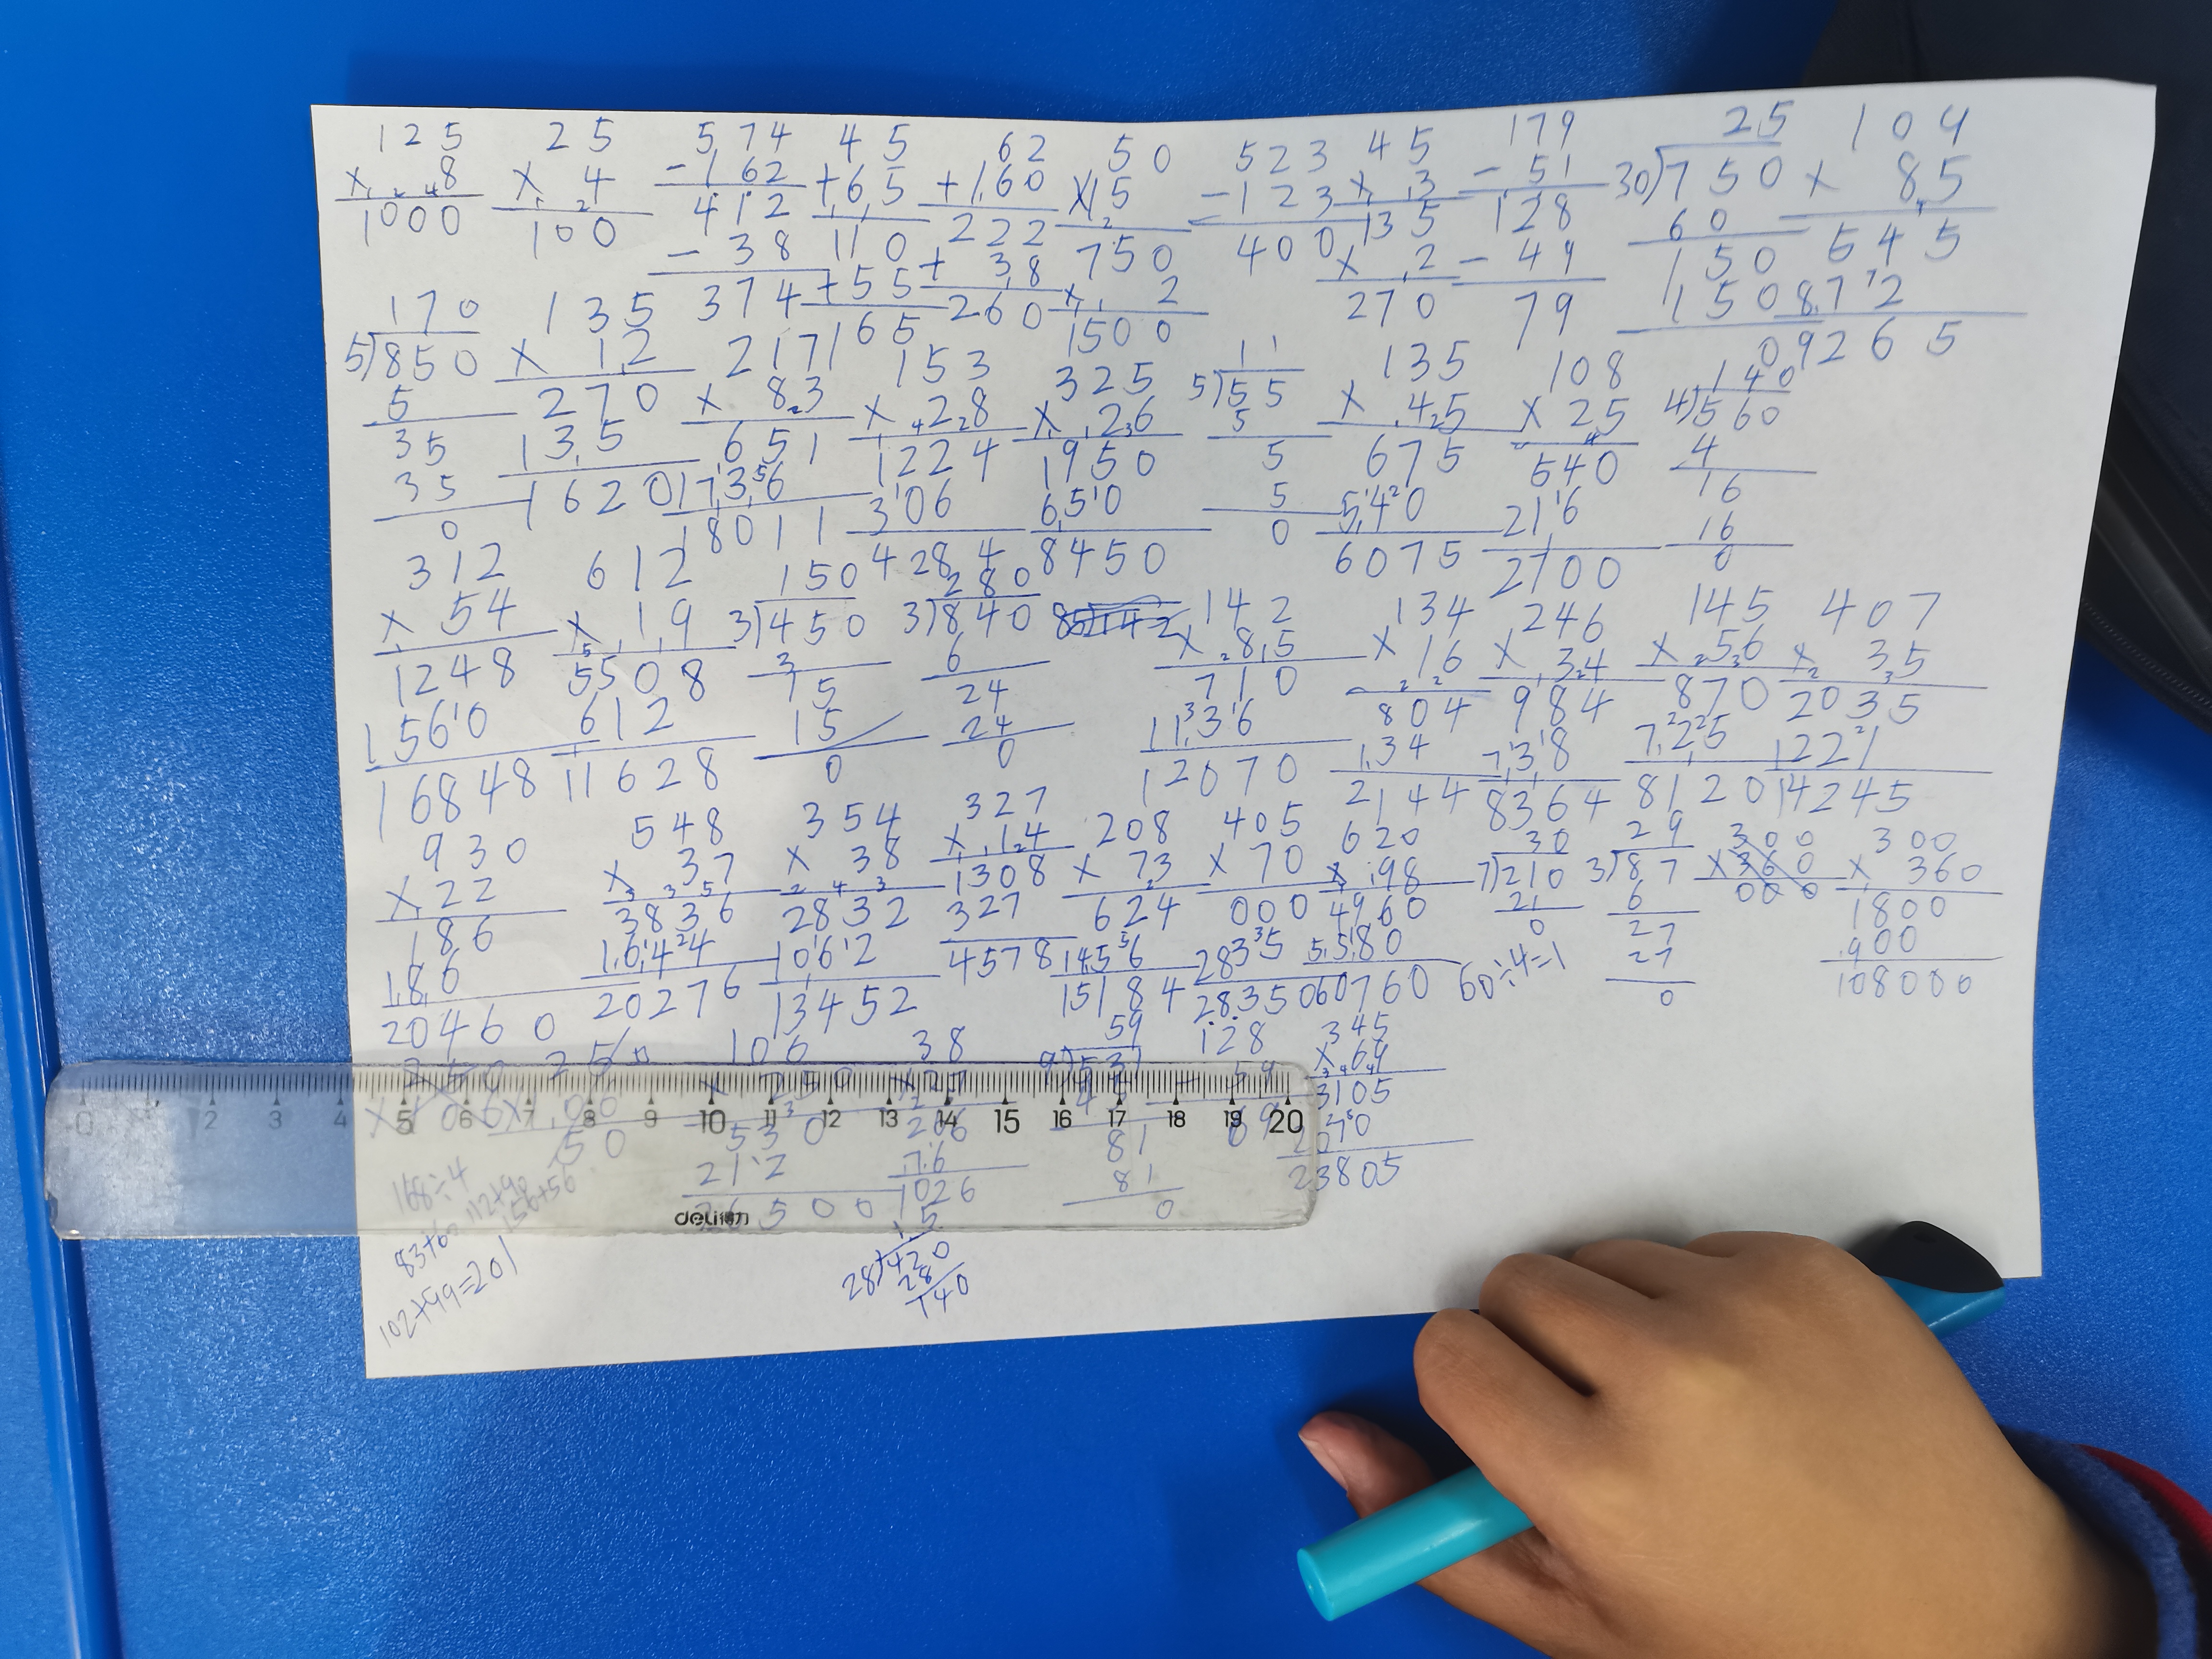 125 25 574 45 62 50 523 45 179 25 109
×8 ×4 -162 +65 +160 ×15 -123 ×3 -51 30)750 ×85
1000 100 412 110 222 750 400 135 128 60 545
-38 +55 +38 ×2 ×2 -49 150 872
374 165 260 1500 270 79 150 9265
0
170 135 217 153 325 11 135 108 140
5)850 ×12 ×83 ×28 ×26 5)55 ×45 ×25 4)560
5 270 651 1224 1950 5 675 540 4
35 135 1736 306 650 5 540 216 16
35 1620 18011 4284 8450 5 6075 2700 16
0 0 0
312 612 150 280 142 134 246 145 407
×54 ×19 3)450 3)840 ×85 ×16 ×34 ×56 ×35
1248 5508 3 6 710 804 984 870 2035
1560 612 15 24 1136 134 738 725 1221
16848 11628 15 24 12070 2144 8364 8120 14245
0 0
930 548 354 327 208 405 620 30 29 300 300
×22 ×37 ×38 ×14 ×73 ×70 ×98 7)210 3)87 ×360 ×360
186 3836 2832 1308 624 000 4960 21 6 000 1800
186 1644 1062 327 1456 2835 5580 0 27 900
20460 20276 13452 4578 15184 28350 60760 60÷4=1 27 108000
0
106 38 59 128 345
×250 ×27 9)531 -59 ×69
530 266 45 69 3105
212 76 81 2070
26500 1026 81 23805
0
0 1 2 3 4 5 6 7 8 9 10 11 12 13 14 15 16 17 18 19 20
deli得力
168÷4
83+60 112+90 156+56
102+99=201
15
28)420
280
140